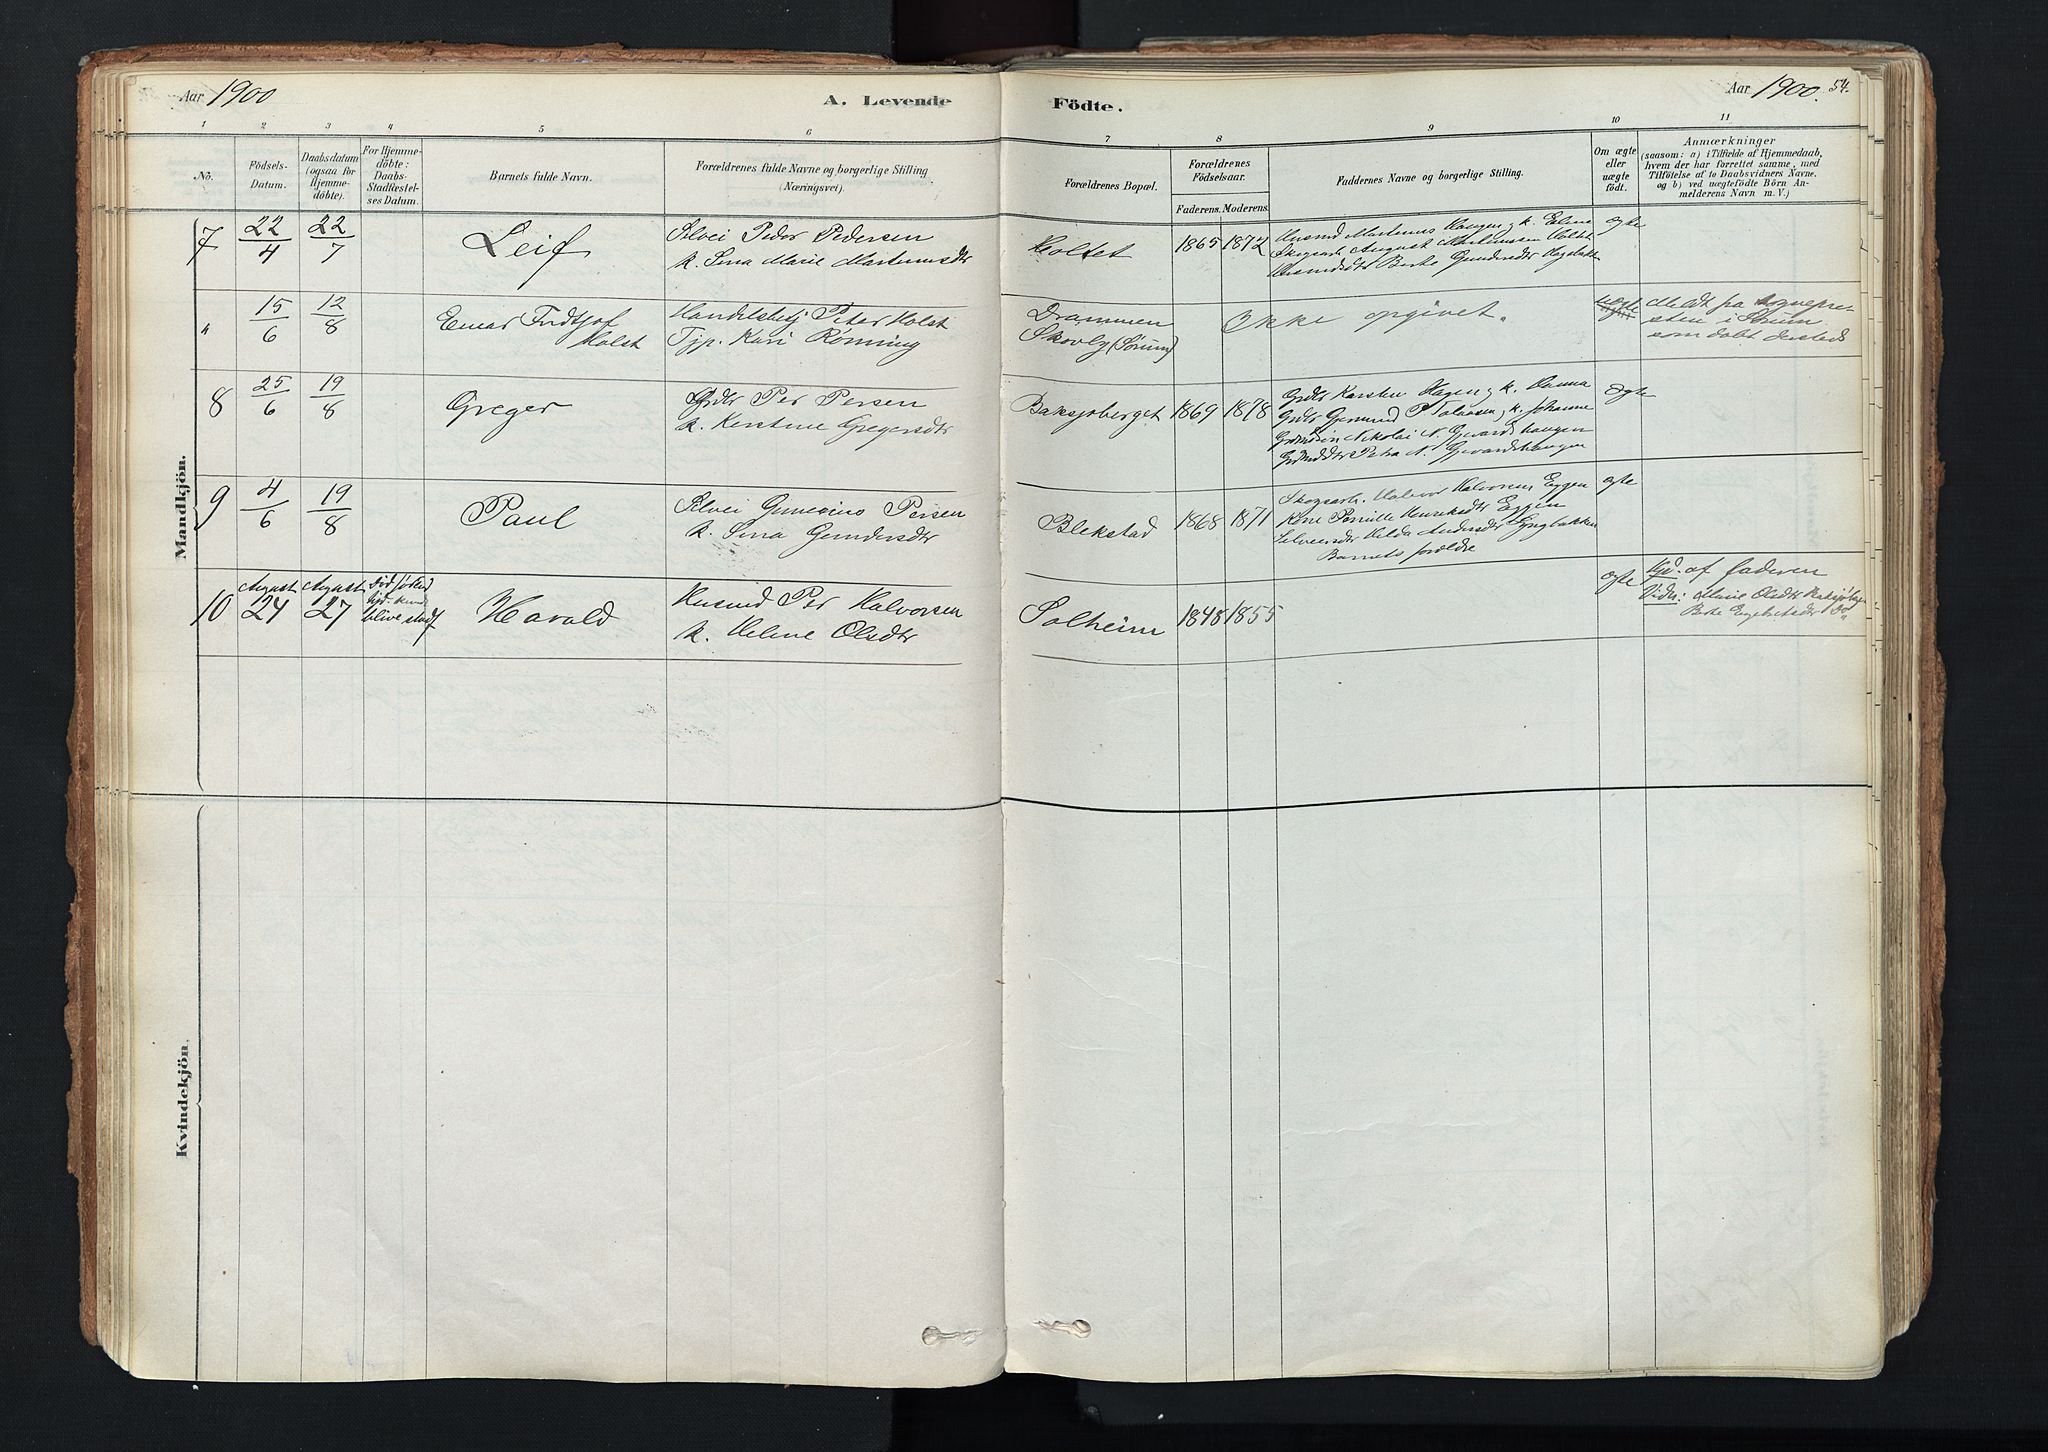 Aar 1900
A. Levende
Födte.
Aar 1900.
54.
1 2 3 4 5 6 7 8 9 10 11
No.
Födsels-
Datum.
Daabsdatum
(ogsaa för
Hjemme-
döbte).
For Hjemme-
döbte:
Daabs-
Stadfestel-
ses Datum.
Barnets fulde Navn.
Forældrenes fulde Navne og borgerlige Stilling
(Næringsvei).
Forældrenes Bopæl.
Forældrenes
Födselsaar.
Faderens. Moderens.
Faddernes Navne og borgerlige Stilling.
Om ægte
eller
uægte
födt.
Anmærkninger
(saasom: a) i Tilfælde af Hjemmedaab,
hvem der har forrettet samme, med
Tilföielse af to Daabsvidners Navne.
og b) ved uægtefödte Börn An-
melderens Navn m. V.)
Mandkjön.
7
22/4
22/7
Leif
Selvei Peder Pedersen
k. Sina Marie Martinusdtr
Holtet
1865 1872
Husmd Martinus Haugen, k. Eline
Skogsarb. August Martinussen Holtet
Berte Gundersdtr
ægte
"
15/6
12/8
Einar Fridtjof
Holst
Handelsbetj Peter Holst
Typ. Kari Rønning
Drammen
Skovly (Sørum)
Ikke opgivet.
uægte
Meldt fra sognepre-
sten i Sørum
som døbt dersteds
8
25/6
19/8
Greger
Grdbr Per Persen
k. Kerstine Gregersdtr
Baksjøberget
1869 1878
Grdbr Karsten Hagen, k. Hanna
Grdbr Gjermund P. k. Johanne
Nikolai N. Gjerardshaugen
Petra N. Gjerardshaugen
ægte
9
4/6
19/8
Paul
Selvei Gunerius Persen
k. Sina Gundersdtr
Blekstad
1868 1871
Skogsarb. Halvor Halvorsen Eggen
Kone Pernille Henriksdtr Eggen
Selveiersdtr Helda Andersdtr
Barnets forældre
ægte
10
August
24
August
27
Død førend
hjd. kunde
blive stadf
Harald
Husmd Per Halvorsen
k. Helene Olsdtr
Solheim
1848 1855
ægte
Hjd. af faderen
Vidn: Marie Olsdtr
Berte Engebretsdtr Do"
Kvindekjön.